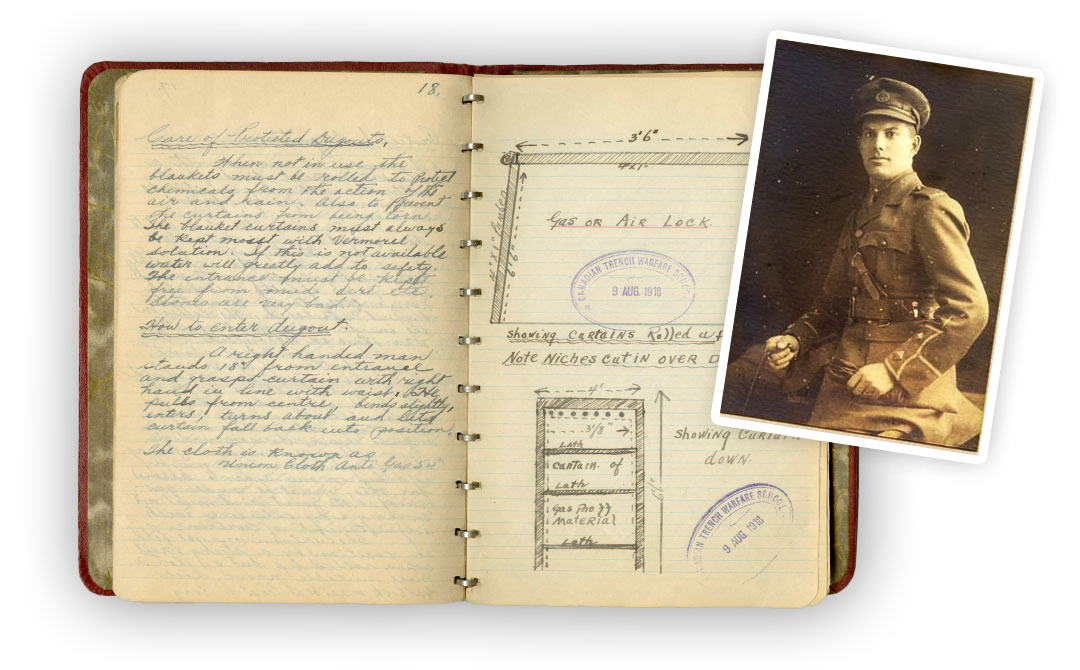 18.
Care of Protected Dugouts.
When not in use the
blankets must be rolled to protect
chemicals from the action of the
air and rain. Also to prevent
the curtains from being torn.
The blanket curtains must always
be kept moist with Vermorel
solution. If this is not available
water will greatly add to safety.
The entrance must be kept
free from mud, dirt etc.
Stones are very bad.
How to enter dugout.
A right handed man
stands 18" from entrance
and grasps curtain with right
hand in line with waist. He
pulls from centre, bends slightly,
enters, turns about and lets
curtain fall back into position
The cloth is known as
Union Cloth Anti Gas
3'6"
4"x1"
4"x1"
6'6"
Gas or Air Lock.
CANADIAN TRENCH WARFARE SCHOOL
9 AUG. 1918
Showing Curtains Rolled up
Note Niches cut in over D
4'
3'/8"
Lath
Curtain of
Lath
Gas Proff
Material
Lath
6'6"
Showing Curtain
down.
CANADIAN TRENCH WARFARE SCHOOL
9 AUG. 1918